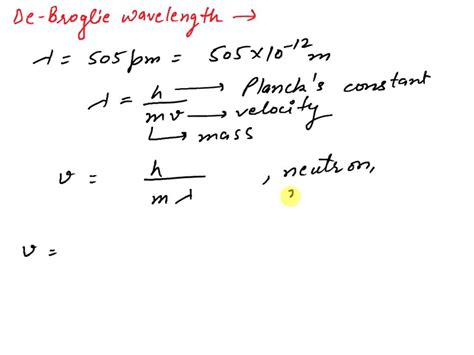 De-Broglie wavelength →
λ = 505 pm = 505 × 10⁻¹² m
λ = h/mv
h → Planck's constant
v → velocity
m → mass
v = h/mλ , neutron,
v =